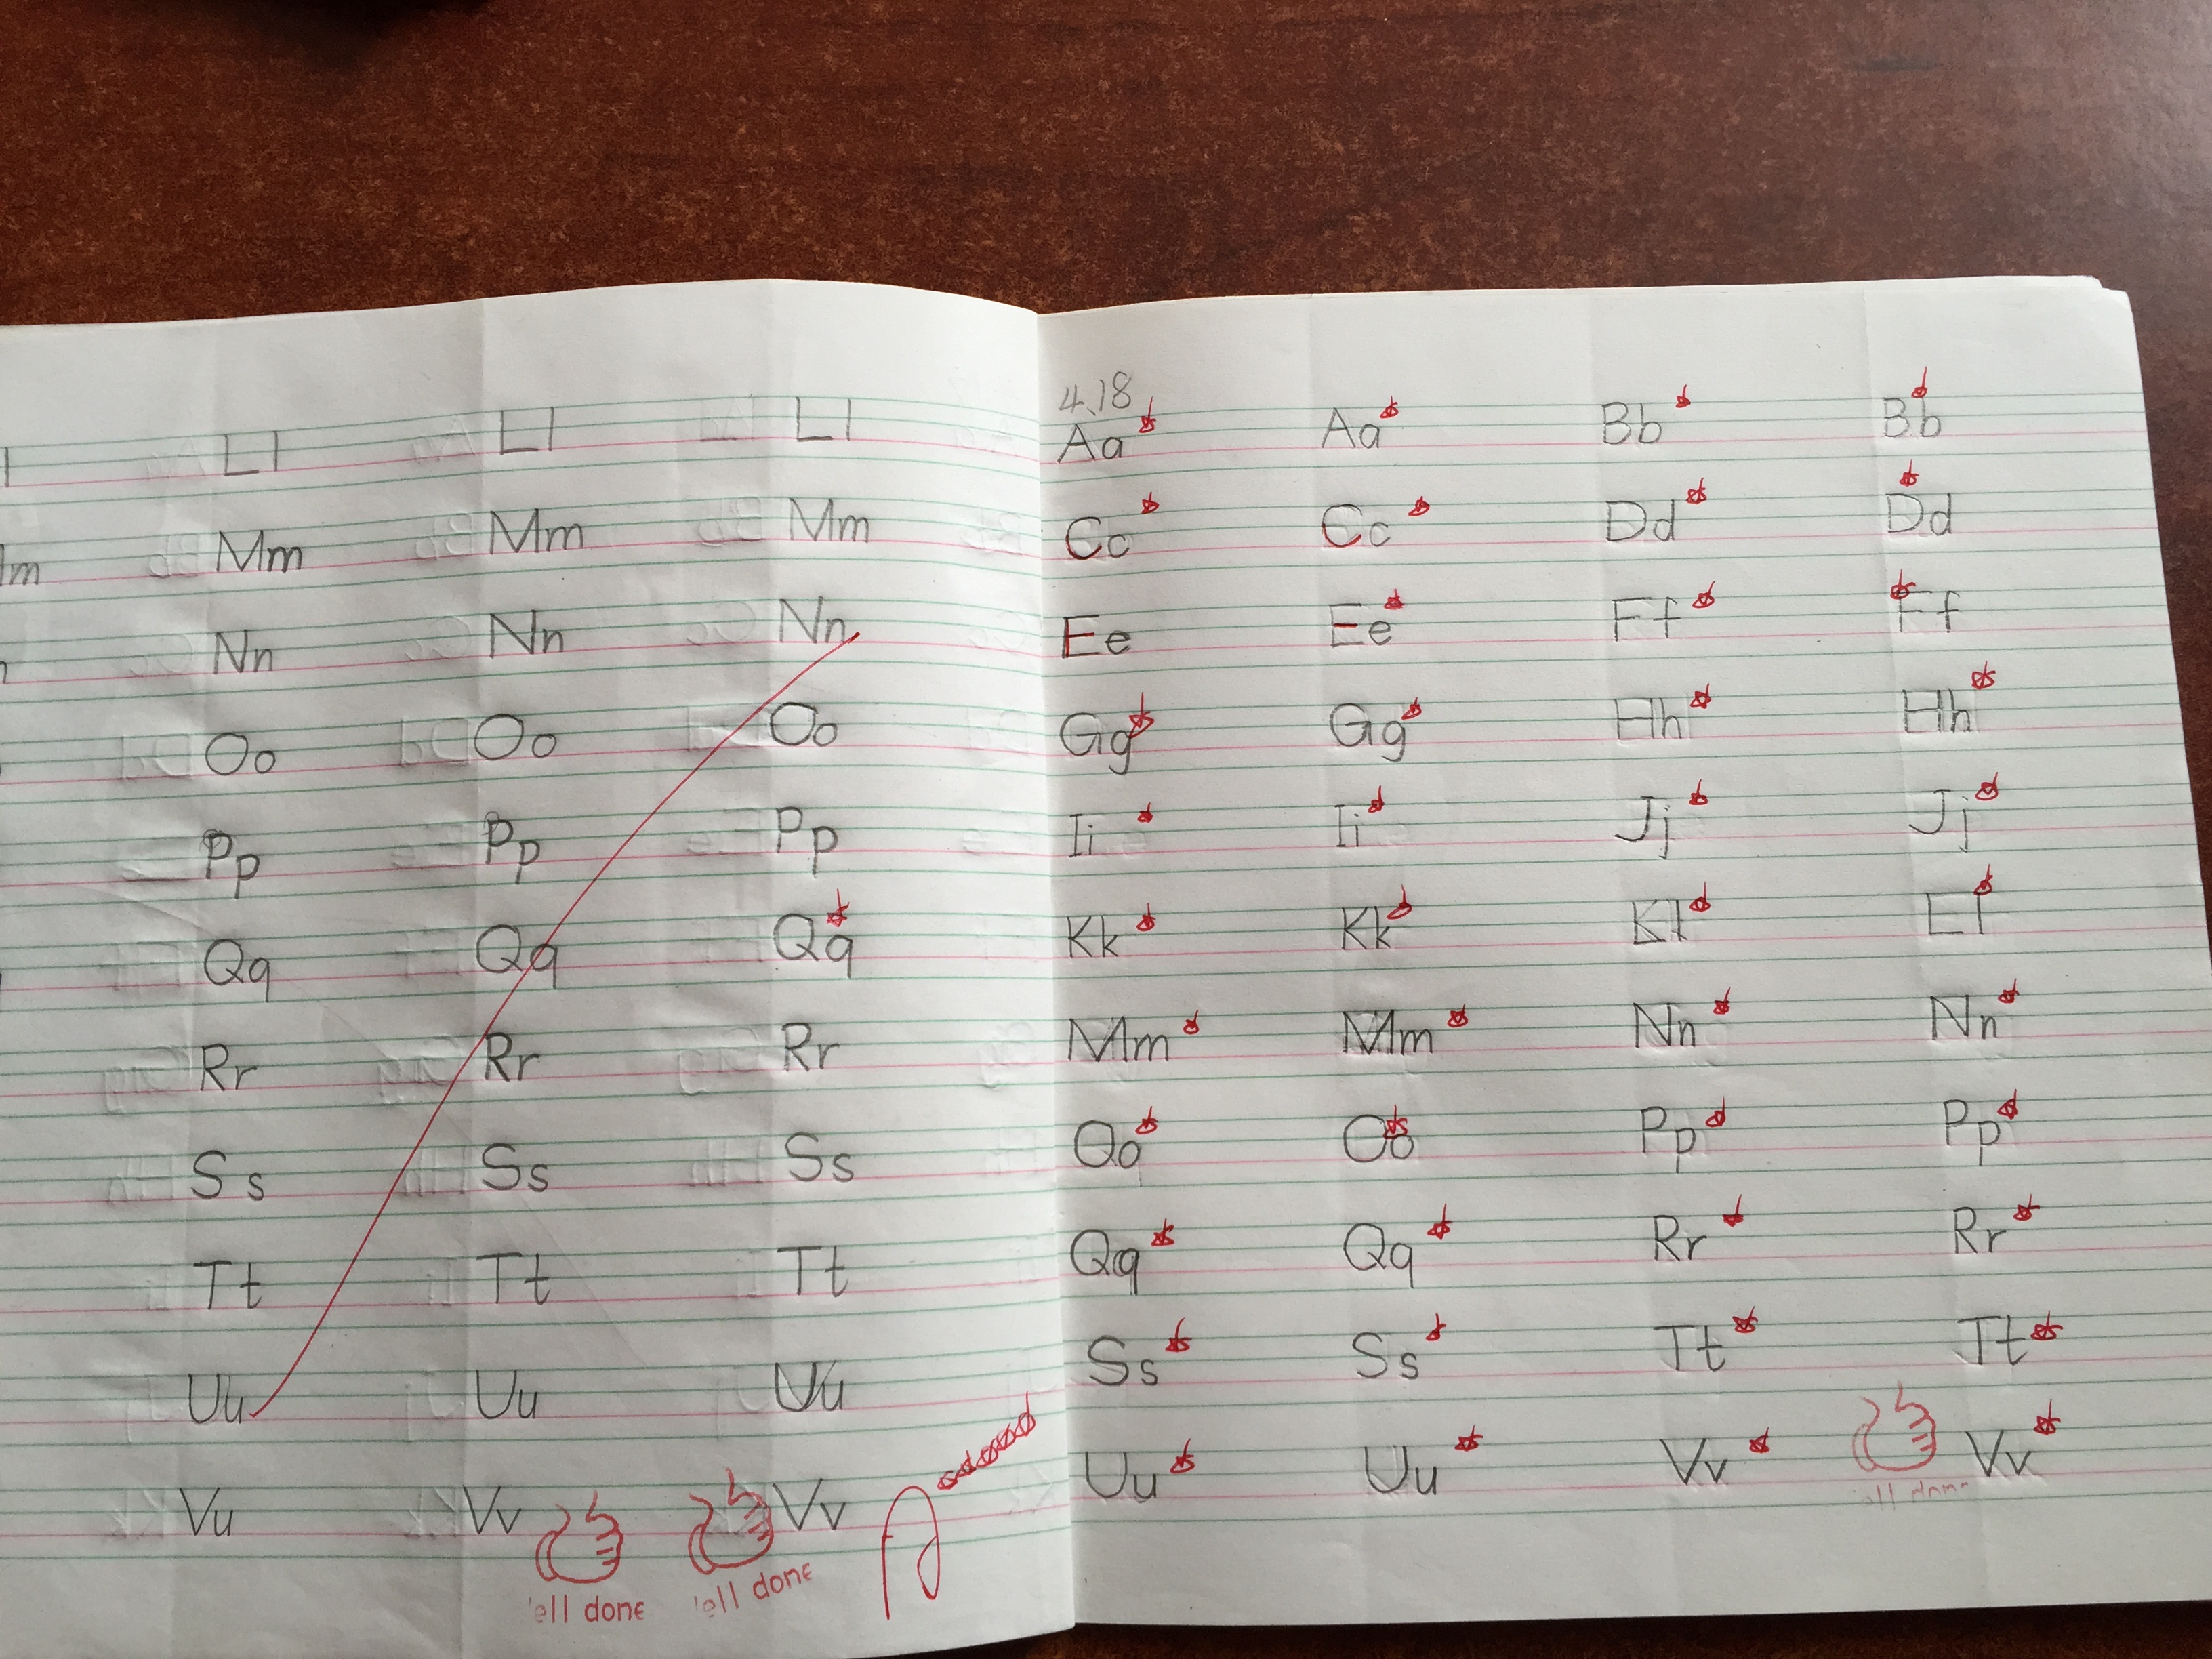 Ll Ll Ll
Mm Mm Mm
Nn Nn Nn
Oo Oo Oo
Pp Pp Pp
Qq Qq Qq
Rr Rr Rr
Ss Ss Ss
Tt Tt Tt
Uu Uu Uu
Vu Vv Vv
'ell done 'ell done
4.18
Aa Aa Bb Bb
Cc Cc Dd Dd
Ee Ee Ff Ff
Gg Gg Hh Hh
Ii Ii Jj Jj
Kk Kk
Mm Mm Nn Nn
Oo Oo Pp Pp
Qq Qq Rr Rr
Ss Ss Tt Tt
Uu Uu Vv Vv
ell done